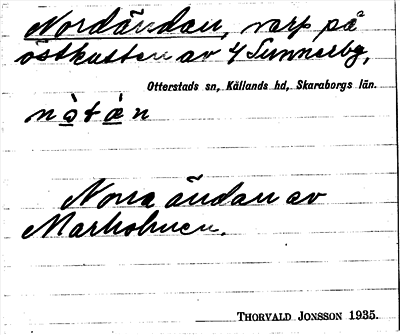 Nordändan, varp på
östkusten av 4 Sunnerby,
Otterstads sn, Kållands hd, Skaraborgs län.
nòtàn
Norra ändan av
Marholmen.
THORVALD JONSSON 1935.